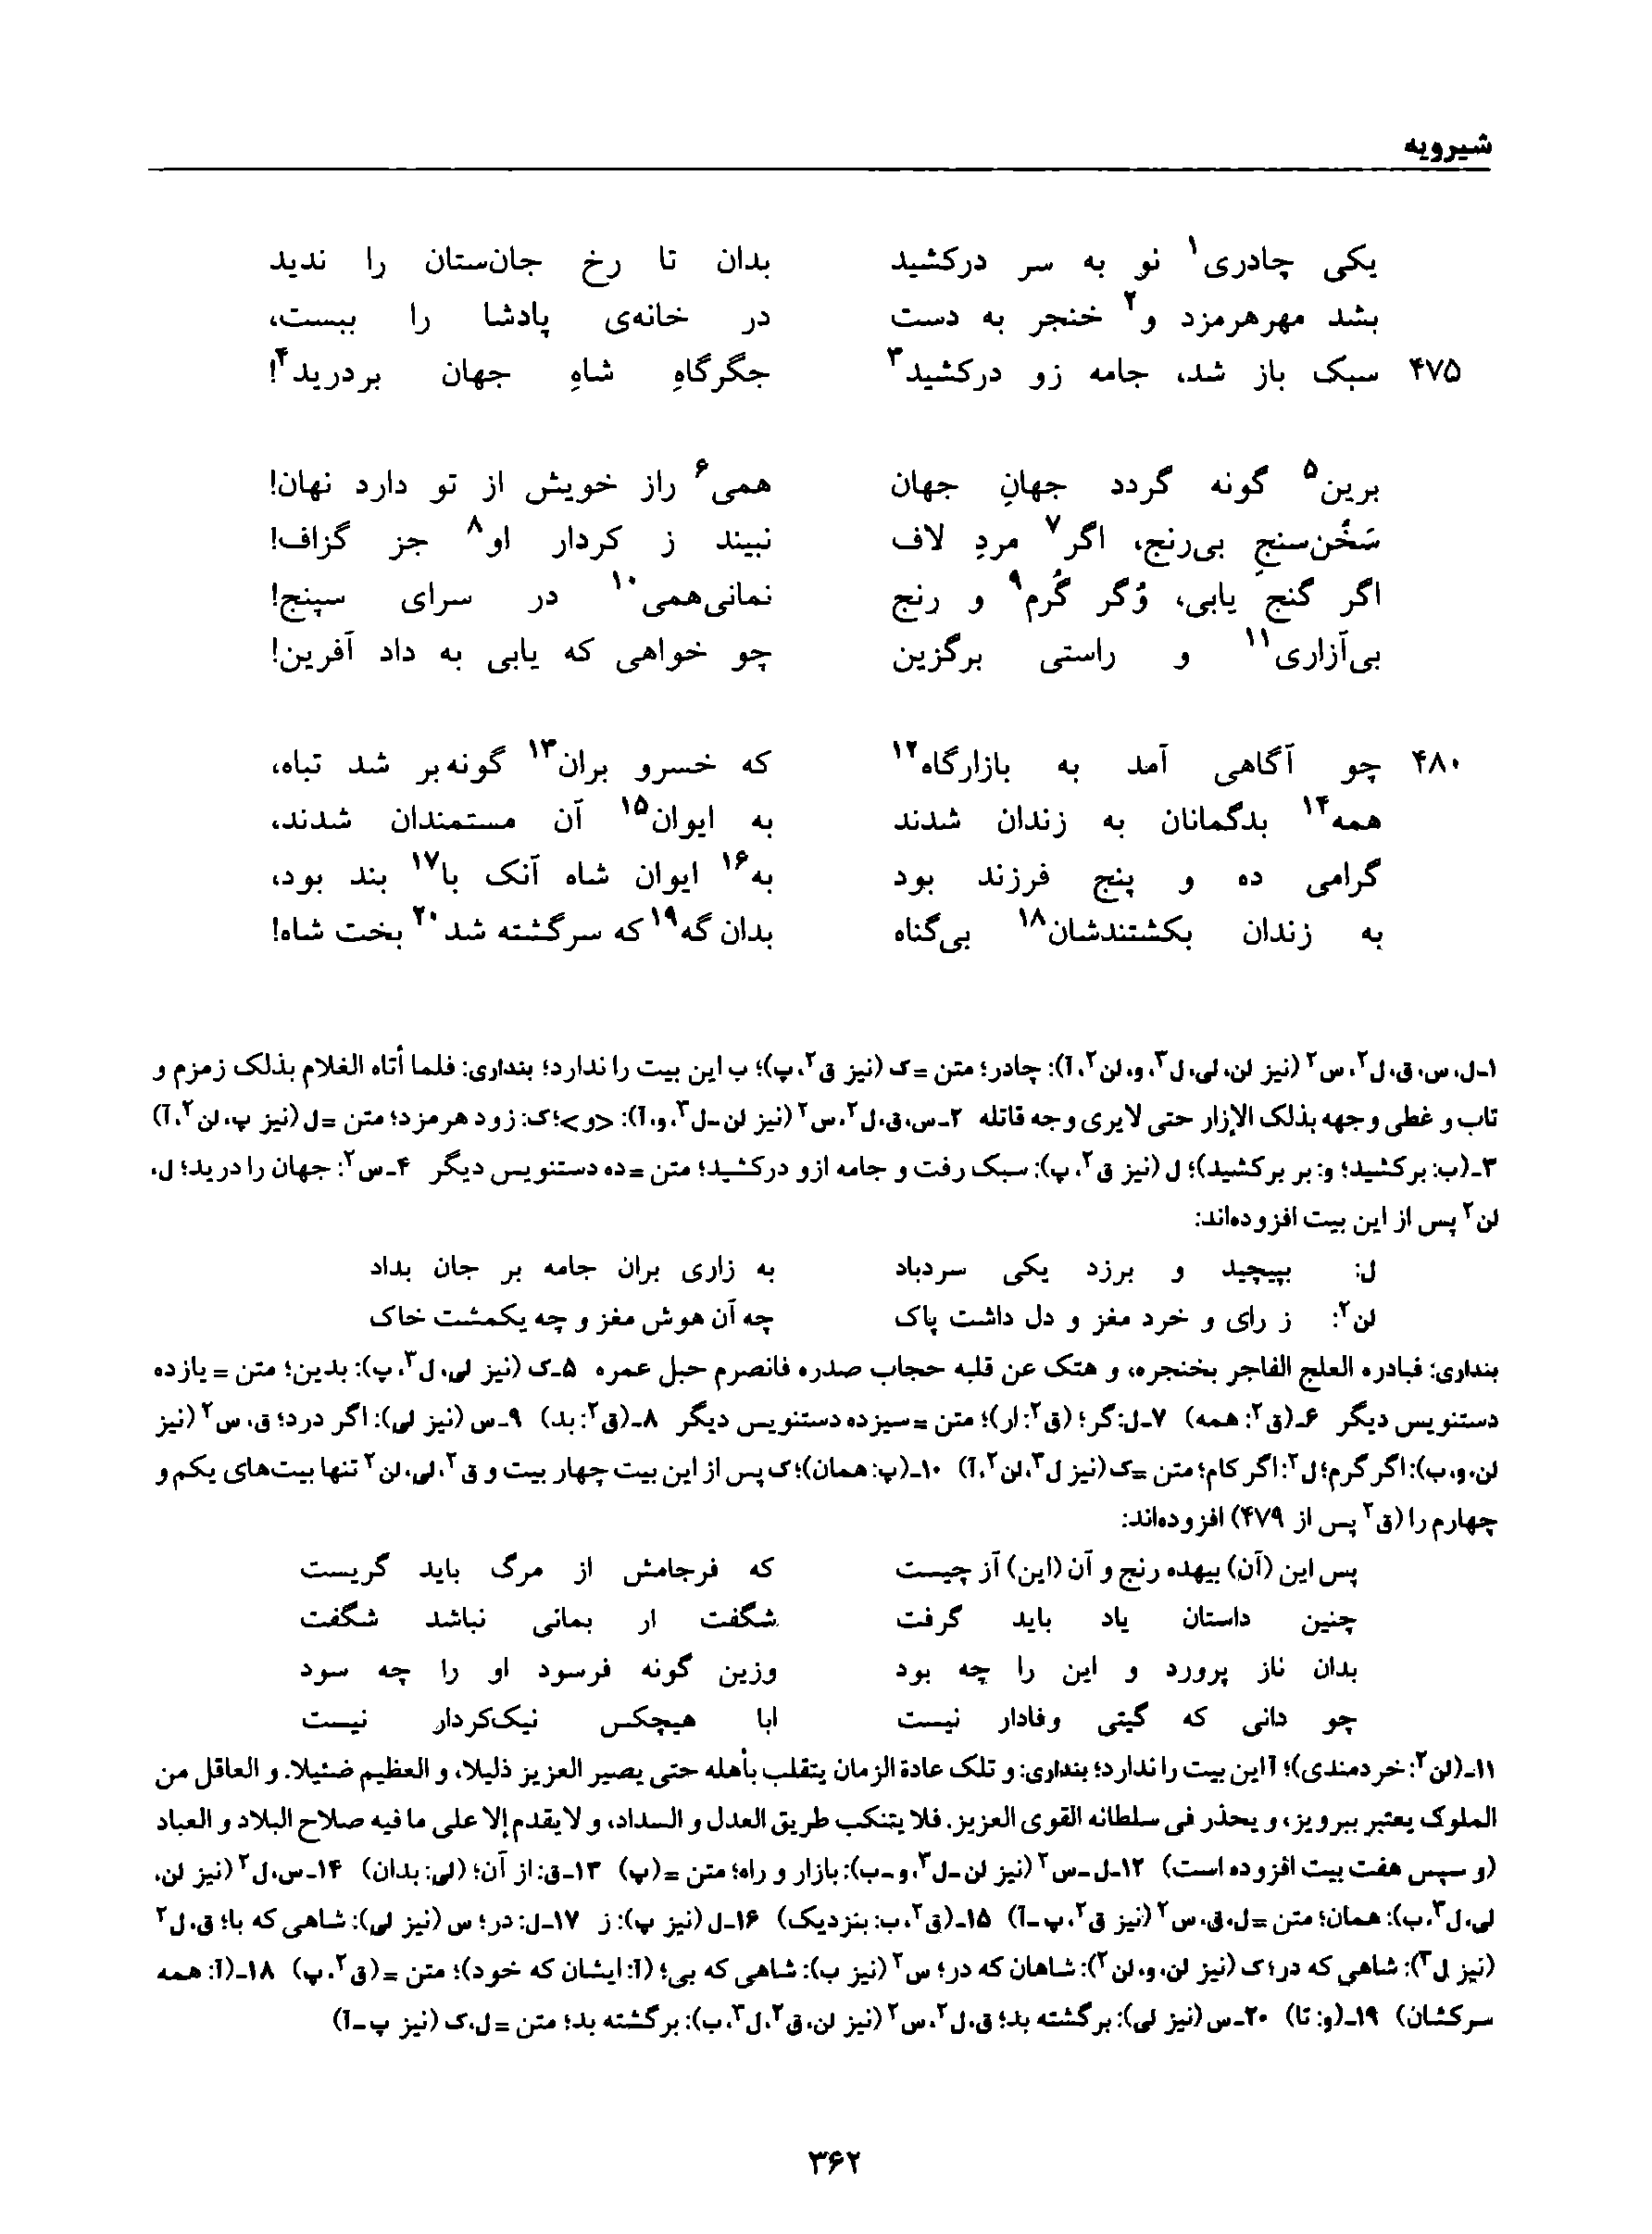 شیرویه
یکی چادری۱ نو به سر درکشید بدان تا رخ جان‌ستان را ندید
بشد مهرهرمزد و۲ خنجر به دست در خانه‌ی پادشا را ببست،
۴۷۵ سبک باز شد، جامه زو درکشید۳ جگرگاهِ شاهِ جهان بردرید۴!
برین۵ گونه گردد جهانِ جهان همی۶ راز خویش از تو دارد نهان!
سَخُن‌سنجِ بی‌رنج، اگر۷ مردِ لاف نبیند ز کردار او۸ جز گزاف!
اگر گنج یابی، وُگر گُرم۹ و رنج نمانی‌همی۱۰ در سرای سپنج!
بی‌آزاری۱۱ و راستی برگزین چو خواهی که یابی به داد آفرین!
۴۸۰ چو آگاهی آمد به بازارگاه۱۲ که خسرو بران۱۳ گونه‌بر شد تباه،
همه۱۴ بدگمانان به زندان شدند به ایوان۱۵ آن مستمندان شدند،
گرامی ده و پنج فرزند بود به۱۶ ایوان شاه آنک با۱۷ بند بود،
به زندان بکشتندشان۱۸ بی‌گناه بدان گه۱۹ که سرگشته شد۲۰ بخت شاه!
۱ـ ل، س، ق، ل۲، س۲ (نیز لن، لی، ل۳، و، لن۲، آ): چادر؛ متن = ک (نیز ق۲، پ)؛ ب این بیت را ندارد؛ بنداری: فلما أتاه الغلام بذلک زمزم و
تاب و غطی وجهه بذلک الإزار حتی لایری وجه قاتله ۲ـ س، ق، ل۲، س۲ (نیز لن ـ ل۳، و، آ): <و>؛ ک: زود هرمزد؛ متن = ل (نیز پ، لن۲، آ)
۳ـ (ب: برکشید؛ و: بر برکشید)؛ ل (نیز ق۲، پ): سبک رفت و جامه ازو درکشید؛ متن = ده دستنویس دیگر ۴ـ س۲: جهان را درید؛ ل،
لن۲ پس از این بیت افزوده‌اند:
ل: بپیچید و برزد یکی سردباد به زاری بران جامه بر جان بداد
لن۲: ز رای و خرد مغز و دل داشت پاک چه آن هوش مغز و چه یکمشت خاک
بنداری: فبادره العلج الفاجر بخنجره، و هتک عن قلبه حجاب صدره فانصرم حبل عمره ۵ـ ک (نیز لی، ل۳، پ): بدین؛ متن = یازده
دستنویس دیگر ۶ـ (ق۲: همه) ۷ـ ل: گر؛ (ق۲: ار)؛ متن = سیزده دستنویس دیگر ۸ـ (ق۲: بد) ۹ـ س (نیز لی): اگر درد؛ ق، س۲ (نیز
لن، و، ب): اگر گرم؛ ل۲: اگر کام؛ متن = ک (نیز ل۳، لن۲، آ) ۱۰ـ (پ: همان)؛ ک پس از این بیت چهار بیت و ق۲، لی، لن۲ تنها بیت‌های یکم و
چهارم را (ق۲ پس از ۴۷۹) افزوده‌اند:
پس این (آن) بیهده رنج و آن (این) آز چیست که فرجامش از مرگ باید گریست
چنین داستان یاد باید گرفت شگفت ار بمانی نباشد شگفت
بدان ناز پرورد و این را چه بود وزین گونه فرسود او را چه سود
چو دانی که گیتی وفادار نیست ابا هیچکس نیک‌کردار نیست
۱۱ـ (لن۲: خردمندی)؛ آ این بیت را ندارد؛ بنداری: و تلک عادة الزمان یتقلب بأهله حتی یصیر العزیز ذلیلا، و العظیم ضئیلا. و العاقل من
الملوک یعتبر ببرویز، و یحذر فی سلطانه القوی العزیز. فلا یتنکب طریق العدل و السداد، و لایقدم إلا علی ما فیه صلاح البلاد و العباد
(و سپس هفت بیت افزوده است) ۱۲ـ ل ـ س۲ (نیز لن ـ ل۳، و ـ ب): بازار و راه؛ متن = (پ) ۱۳ـ ق: از آن؛ (لی: بدان) ۱۴ـ س، ل۲ (نیز لن،
لی، ل۳، ب): همان؛ متن = ل، ق، س۲ (نیز ق۲، پ ـ آ) ۱۵ـ (ق۲، ب: بنزدیک) ۱۶ـ ل (نیز پ): ز ۱۷ـ ل: در؛ س (نیز لی): شاهی که با؛ ق، ل۲
(نیز ل۳): شاهی که در؛ ک (نیز لن، و، لن۲): شاهان که در؛ س۲ (نیز ب): شاهی که بی؛ (آ: ایشان که خود)؛ متن = (ق۲، پ) ۱۸ـ (آ: همه
سرکشان) ۱۹ـ (و: تا) ۲۰ـ س (نیز لی): برگشته بد؛ ق، ل۲، س۲ (نیز لن، ق۲، ل۳، ب): برگشته بد؛ متن = ل، ک (نیز پ ـ آ)
۳۶۲